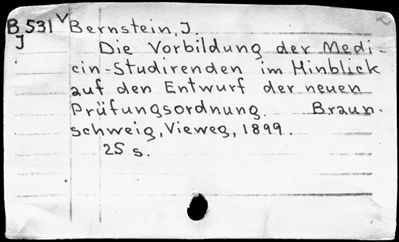 B 531 V Bernstein, J.
J Die Vorbildung der Medi-
cin-Studirenden im Hinblick
auf den Entwurf der neuen
Prüfungsordnung. Braun-
schweig, Vieweg, 1899.
25 s.